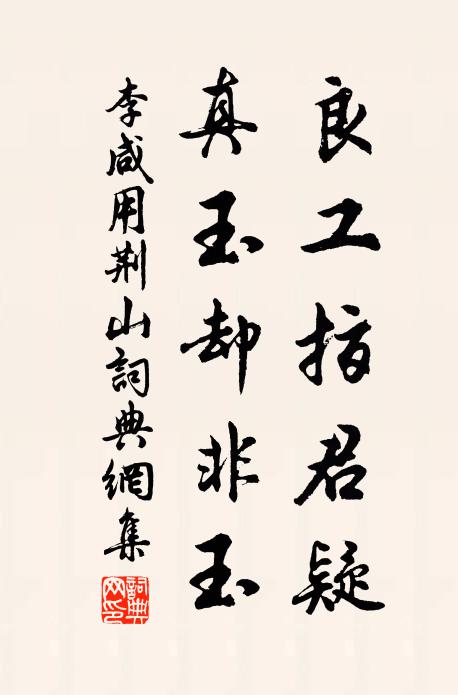 良工指君疑
真玉却非玉
李咸用荆山詞典網集
詞典網印